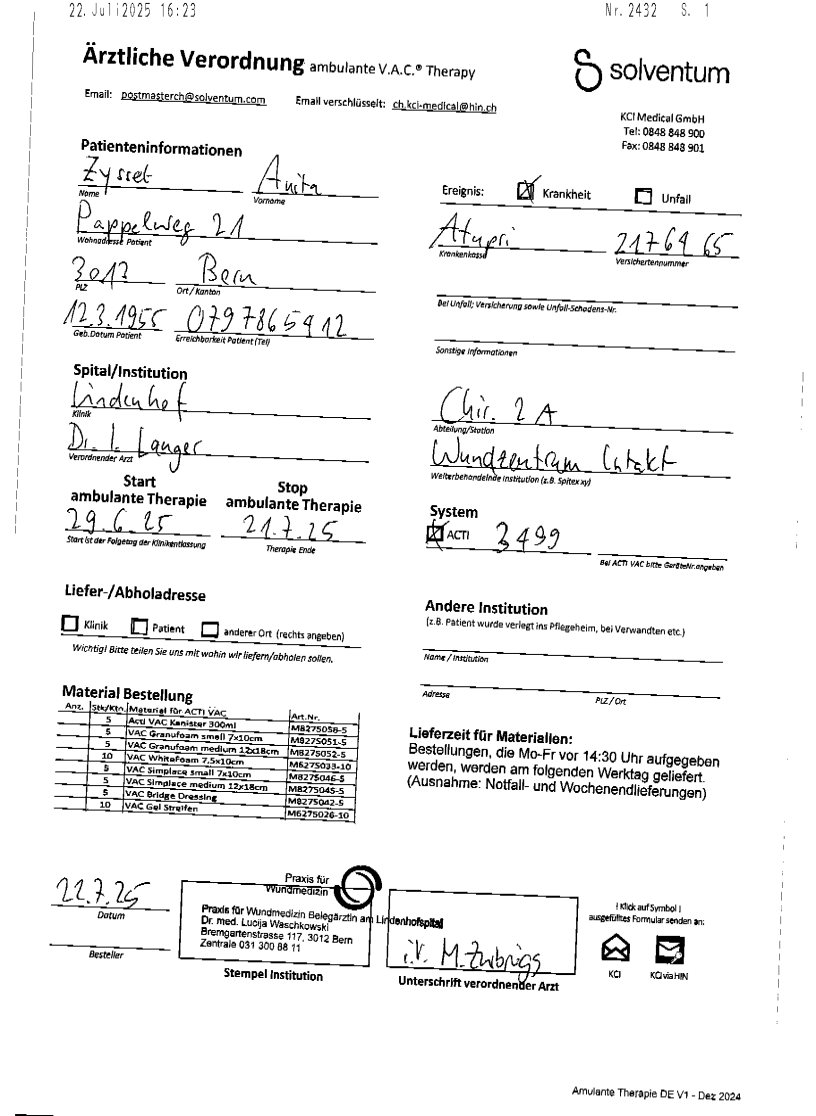 22. Juli 2025 16:23 Nr. 2432 S. 1
Ärztliche Verordnung ambulante V.A.C.® Therapy
solventum
Email: postmasterch@solventum.com Email verschlüsselt: ch.kci-medical@hin.ch
KCI Medical GmbH
Tel: 0848 848 900
Fax: 0848 848 901
Patienteninformationen
Zysset Anita
Name Vorname
Pappelweg 21
Wohnadresse Patient
3012 Bern
PLZ Ort/Kanton
12.3.1955 079 786 59 12
Geb.Datum Patient Erreichbarkeit Patient (Tel)
Ereignis: Krankheit Unfall
Atupri 2176965
Krankenkasse Versichertennummer
Bei Unfall; Versicherung sowie Unfall-Schadens-Nr.
Sonstige Informationen
Spital/Institution
Lindenhof
Klinik
Dr. I. Langer
Verordnender Arzt
Chir. 2 A
Abteilung/Station
Wundzentrum Intakt
Weiterbehandelnde Institution (z.B. Spitex xy)
Start Stop
ambulante Therapie ambulante Therapie
29.6.25 21.7.25
Start ist der Folgetag der Klinikentlassung Therapie Ende
System
ACTI 3499
Bei ACTI VAC bitte GeräteNr.angeben
Liefer-/Abholadresse
Klinik Patient anderer Ort (rechts angeben)
Wichtig! Bitte teilen Sie uns mit wohin wir liefern/abholen sollen.
Andere Institution
(z.B. Patient wurde verlegt ins Pflegeheim, bei Verwandten etc.)
Name / Institution
Adresse PLZ/Ort
Material Bestellung
Anz. Stk/Ktn. Material für ACTI VAC Art.Nr.
5 Acti VAC Kanister 300ml M8275058-5
5 VAC Granufoam small 7x10cm M8275051-5
5 VAC Granufoam medium 12x18cm M8275052-5
10 VAC WhiteFoam 7.5x10cm M6275033-10
5 VAC Simplace small 7x10cm M8275046-5
5 VAC Simplace medium 12x18cm M8275045-5
5 VAC Bridge Dressing M8275042-5
10 VAC Gel Streifen M6275026-10
Lieferzeit für Materialien:
Bestellungen, die Mo-Fr vor 14:30 Uhr aufgegeben
werden, werden am folgenden Werktag geliefert.
(Ausnahme: Notfall- und Wochenendlieferungen)
22.7.25
Datum
Besteller
Praxis für
Wundmedizin
Praxis für Wundmedizin Belegärztin am Lindenhofspital
Dr. med. Lucija Waschkowski
Bremgartenstrasse 117, 3012 Bern
Zentrale 031 300 88 11
Stempel Institution
i.V. M. Zurbriggs
Unterschrift verordnender Arzt
! Klick auf Symbol !
ausgefülltes Formular senden an:
KCI KCI via HIN
Amulante Therapie DE V1 - Dez 2024